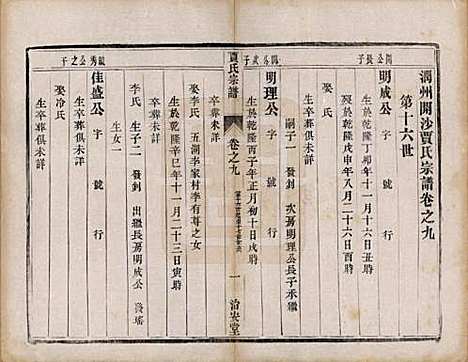 潤州開沙賈氏宗譜卷之九
第十六世
開公長子
明成公 字 號 行
生於乾隆丁卯年十一月二十六日丑時
娶 氏
生於乾隆戊申年八月二十六日酉時
生卒葬俱未詳
嗣子一 發釗 次房明理公長子承繼
明理公 字 號 行
生於乾隆丙子年正月初十日戌時
卒葬未詳
賈氏宗譜
卷之九
一
治安堂
娶李氏 五湖李家村李有尊之女
生於乾隆辛巳年十一月二十三日寅時
卒葬未詳
李氏 生子二 發釗 出繼長房明成公 發瑤
生女一
毓秀公之子
佳盛公 字 號 行
生卒葬俱未詳
娶冷氏
生卒葬俱未詳